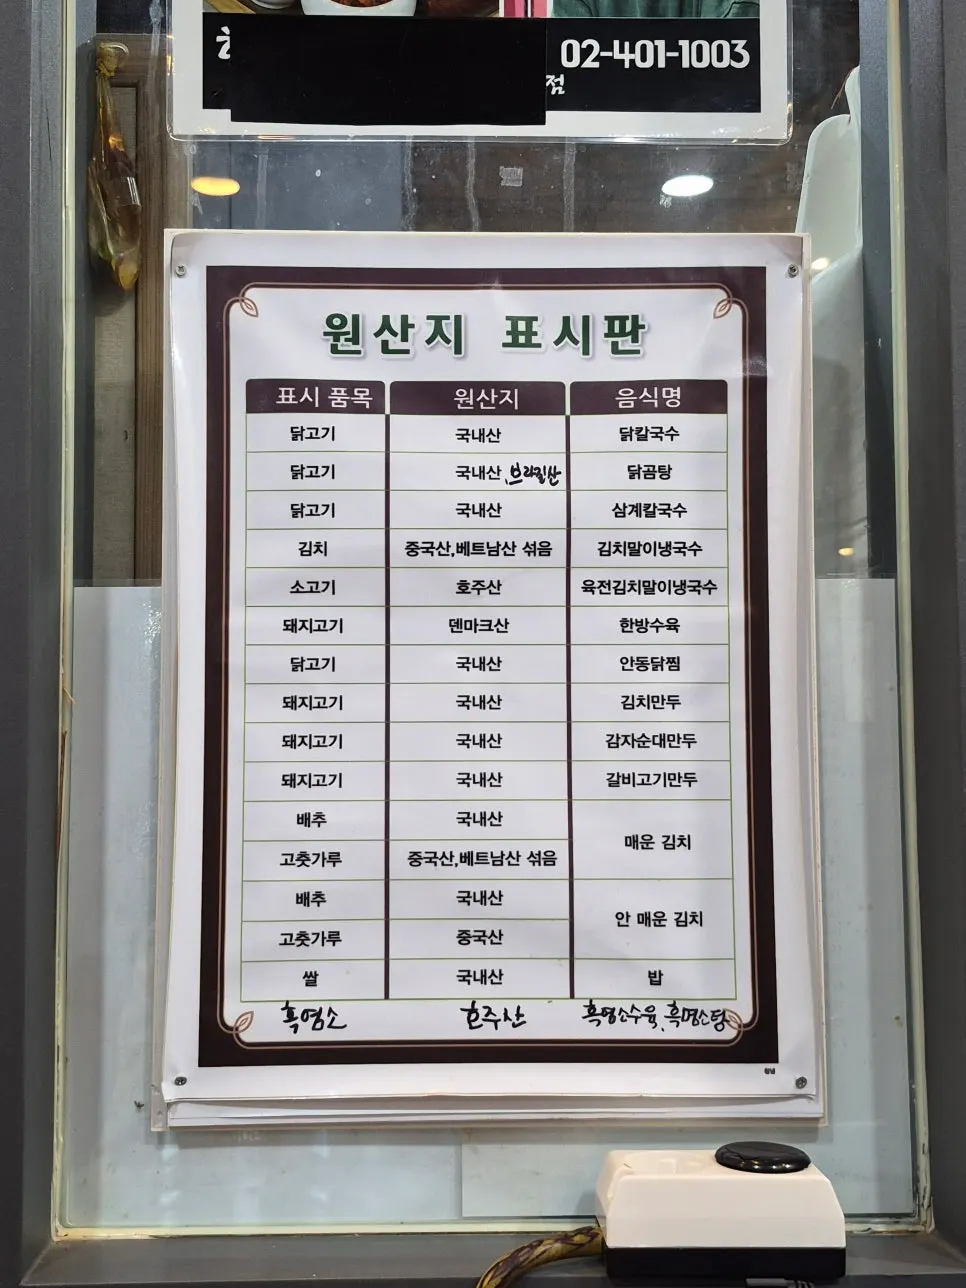 02-401-1003
점
원산지 표시판
표시 품목 원산지 음식명
닭고기 국내산 닭칼국수
닭고기 국내산, 브라질산 닭곰탕
닭고기 국내산 삼계칼국수
김치 중국산,베트남산 섞음 김치말이냉국수
소고기 호주산 육전김치말이냉국수
돼지고기 덴마크산 한방수육
닭고기 국내산 안동닭찜
돼지고기 국내산 김치만두
돼지고기 국내산 감자순대만두
돼지고기 국내산 갈비고기만두
배추 국내산 매운 김치
고춧가루 중국산,베트남산 섞음
배추 국내산 안 매운 김치
고춧가루 중국산
쌀 국내산 밥
흑염소 호주산 흑염소수육, 흑염소탕